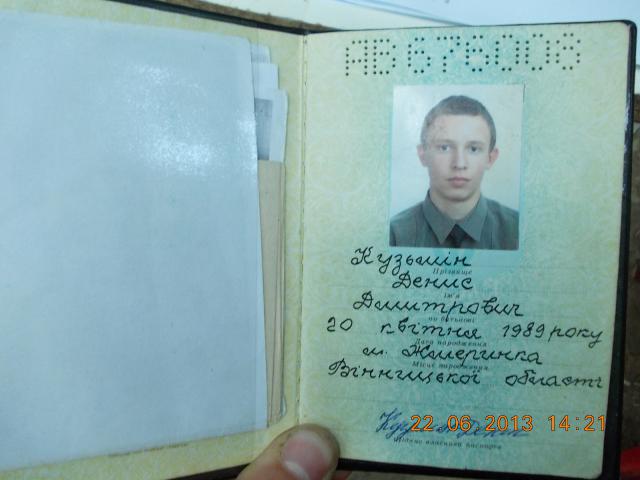 АВ676008
Кузьмін
Прізвище
Денис
Ім'я
Дмитрович
по батькові
20 квітня 1989 року
Дата народження
м. Жмеринка
Місце народження
Вінницької області
22.06.2013 14:21
Підпис власника паспорта